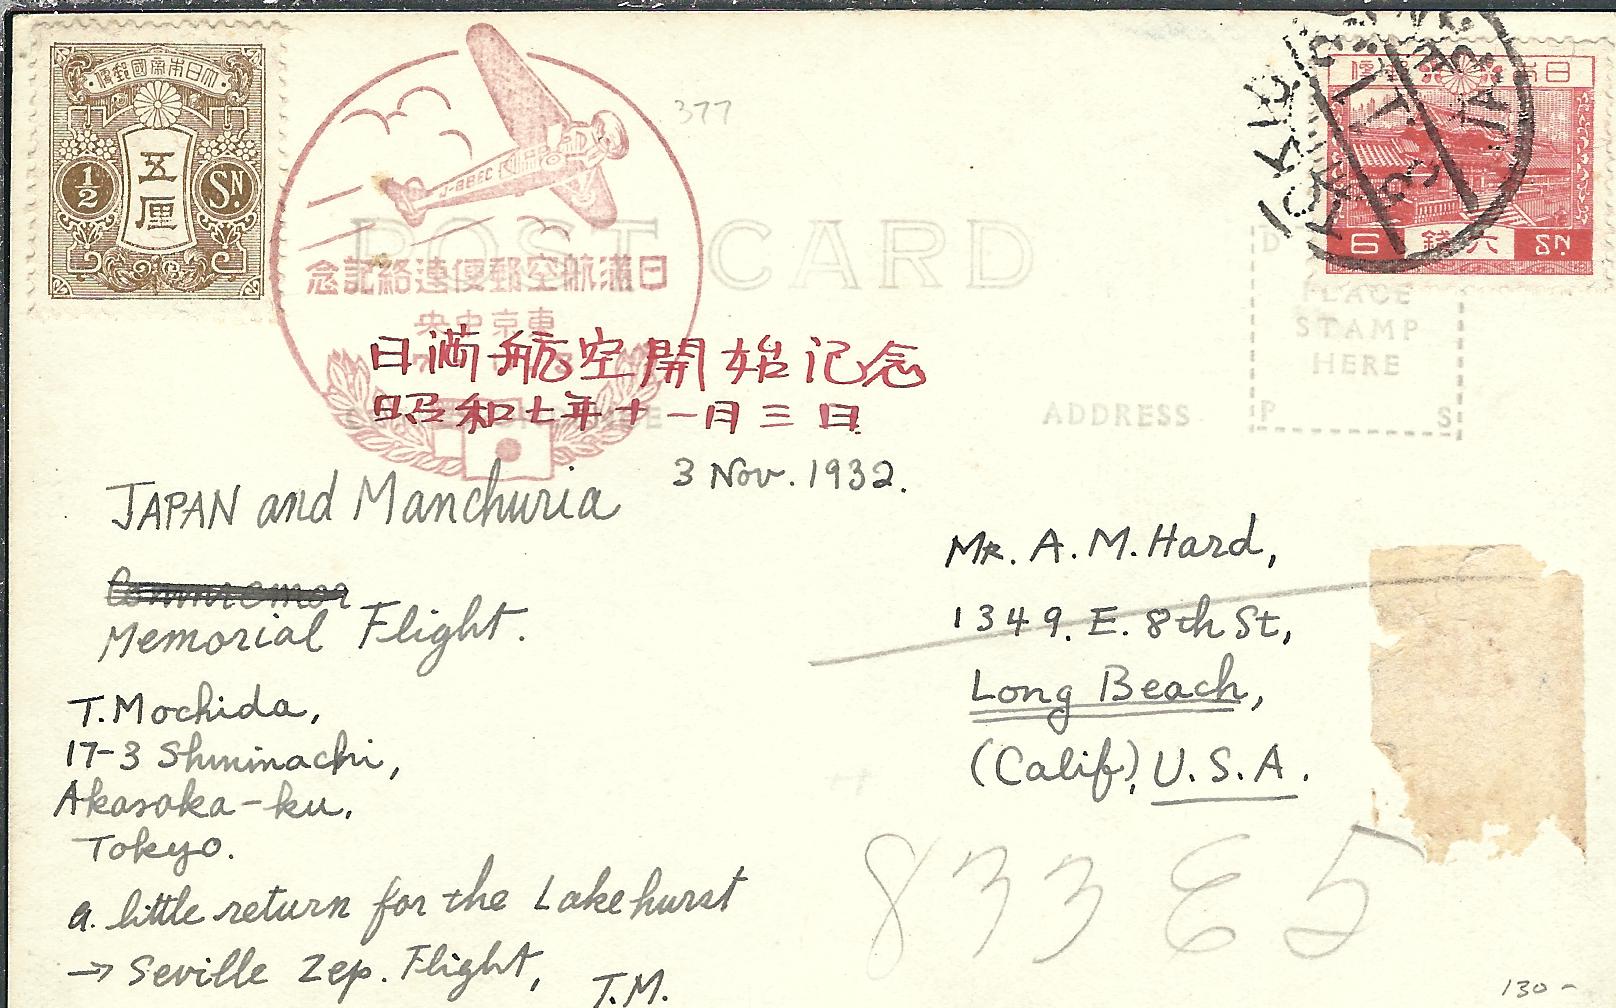 大日本帝國郵便
五厘
1/2 SN.
377
J-BBEC
日本郵便
6 六錢 SN
POST CARD
日滿航空郵便連絡記念
東京中央
PLACE
STAMP
HERE
日満航空開始記念
昭和七年十一月三日
ADDRESS
3 Nov. 1932.
JAPAN and Manchuria
Memorial Flight.
Mr. A. M. Hard,
1349. E. 8th St,
Long Beach,
(Calif), U.S.A.
T. Mochida,
17-3 Shinmachi,
Akasaka-ku,
Tokyo.
a little return for the Lakehurst
→ Seville Zep. Flight,
T.M.
833 E5
130-